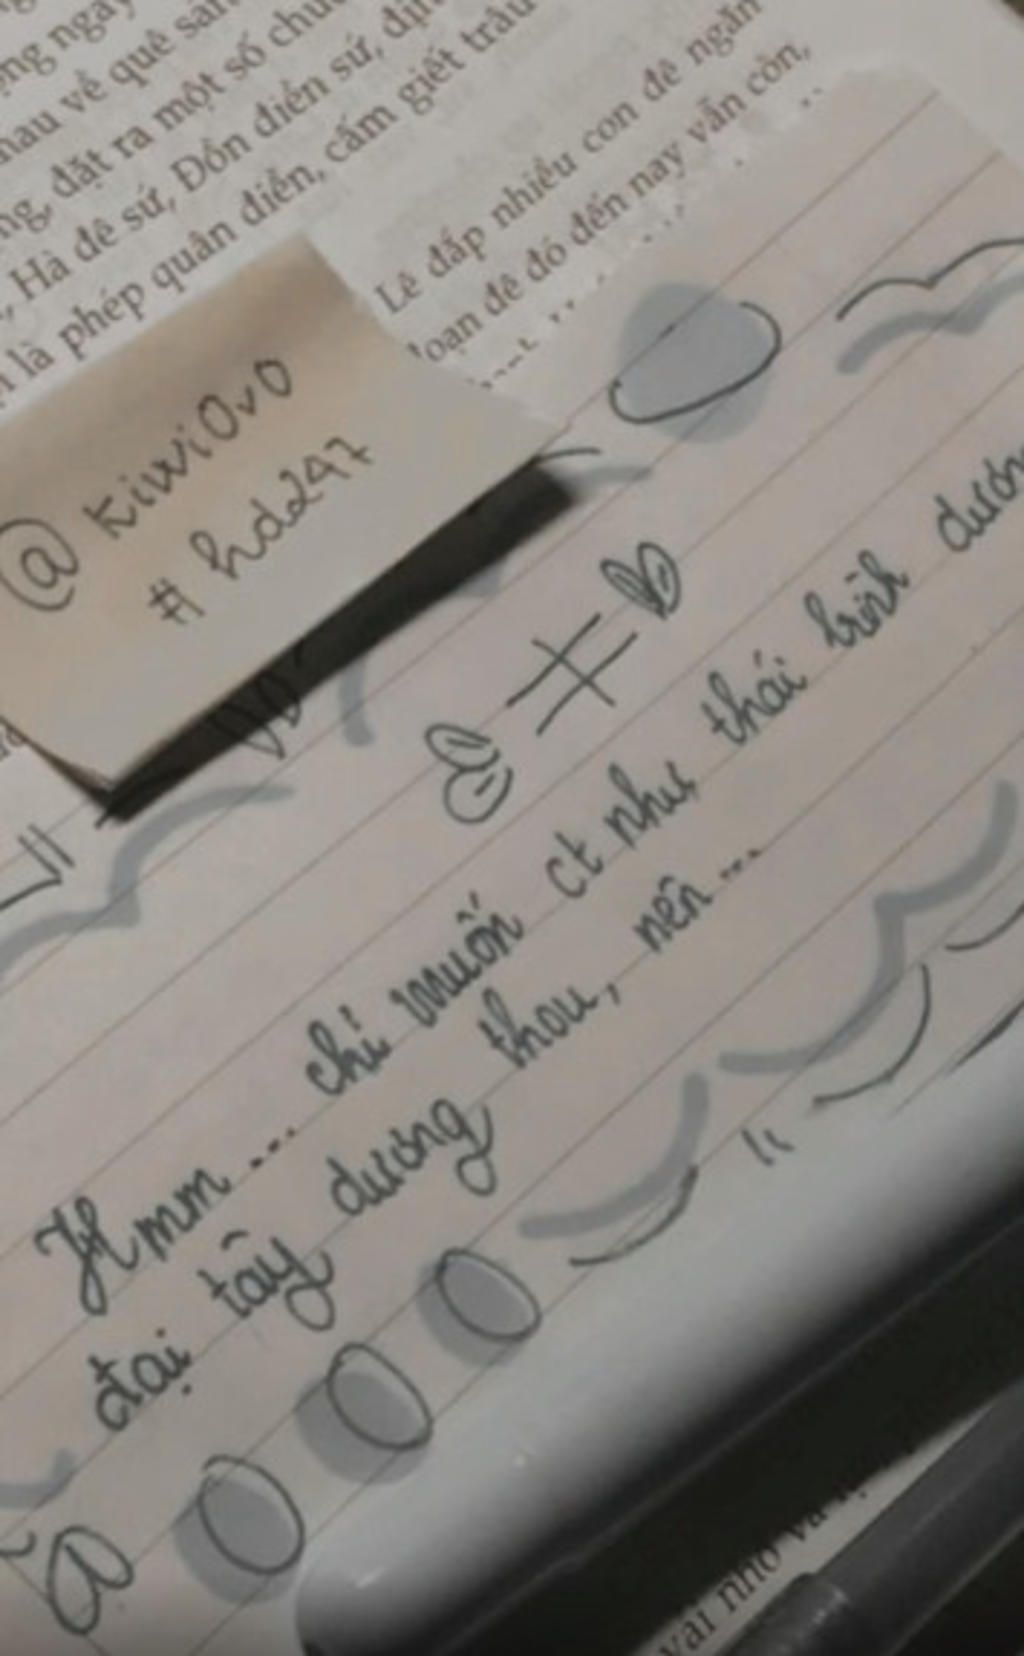 ngay
nhau về quê sản
đặt ra một số
Hà đê sứ, Đồn điền sứ,
là phép quân điền, cấm giết trâu
Lê đắp nhiều con đê ngăn
đoạn đê đó đến nay vẫn còn,
@kiwi0v0
#hd247
Hmm... chỉ muốn ct như thái bình dương
đại tây dương thou, nên...
vài nhỏ và